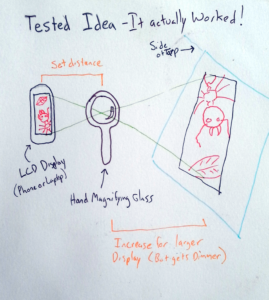 Tested Idea - It actually Worked!
Set distance
Side of
LCD Display
(Phone or Laptop)
Hand Magnifying Glass
Increase for larger
Display (But gets Dimmer)